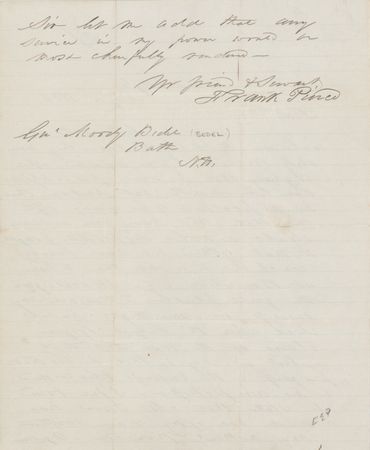 Sir let me add that any
service in my power would be
most cheerfully rendered —
Yr friend & Servt
Frank Pierce
Genl Moody Bedel (BEDEL)
Bath
N.H.